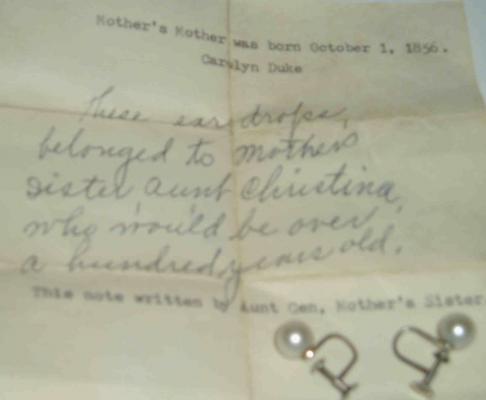 Mother's Mother was born October 1, 1856.
Carolyn Duke
These ear drops,
belonged to mothers
sister, Aunt Christina,
who would be over
a hundred years old.
This note written by Aunt Gen, Mother's Sister